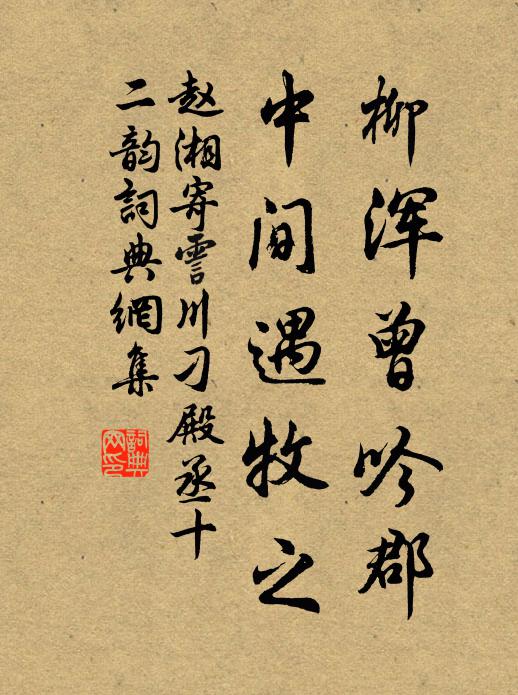 柳浑曾吟郡
中间遇牧之
赵湘寄霅川刁殿丞十
二韵詞典網集
詞典
网印